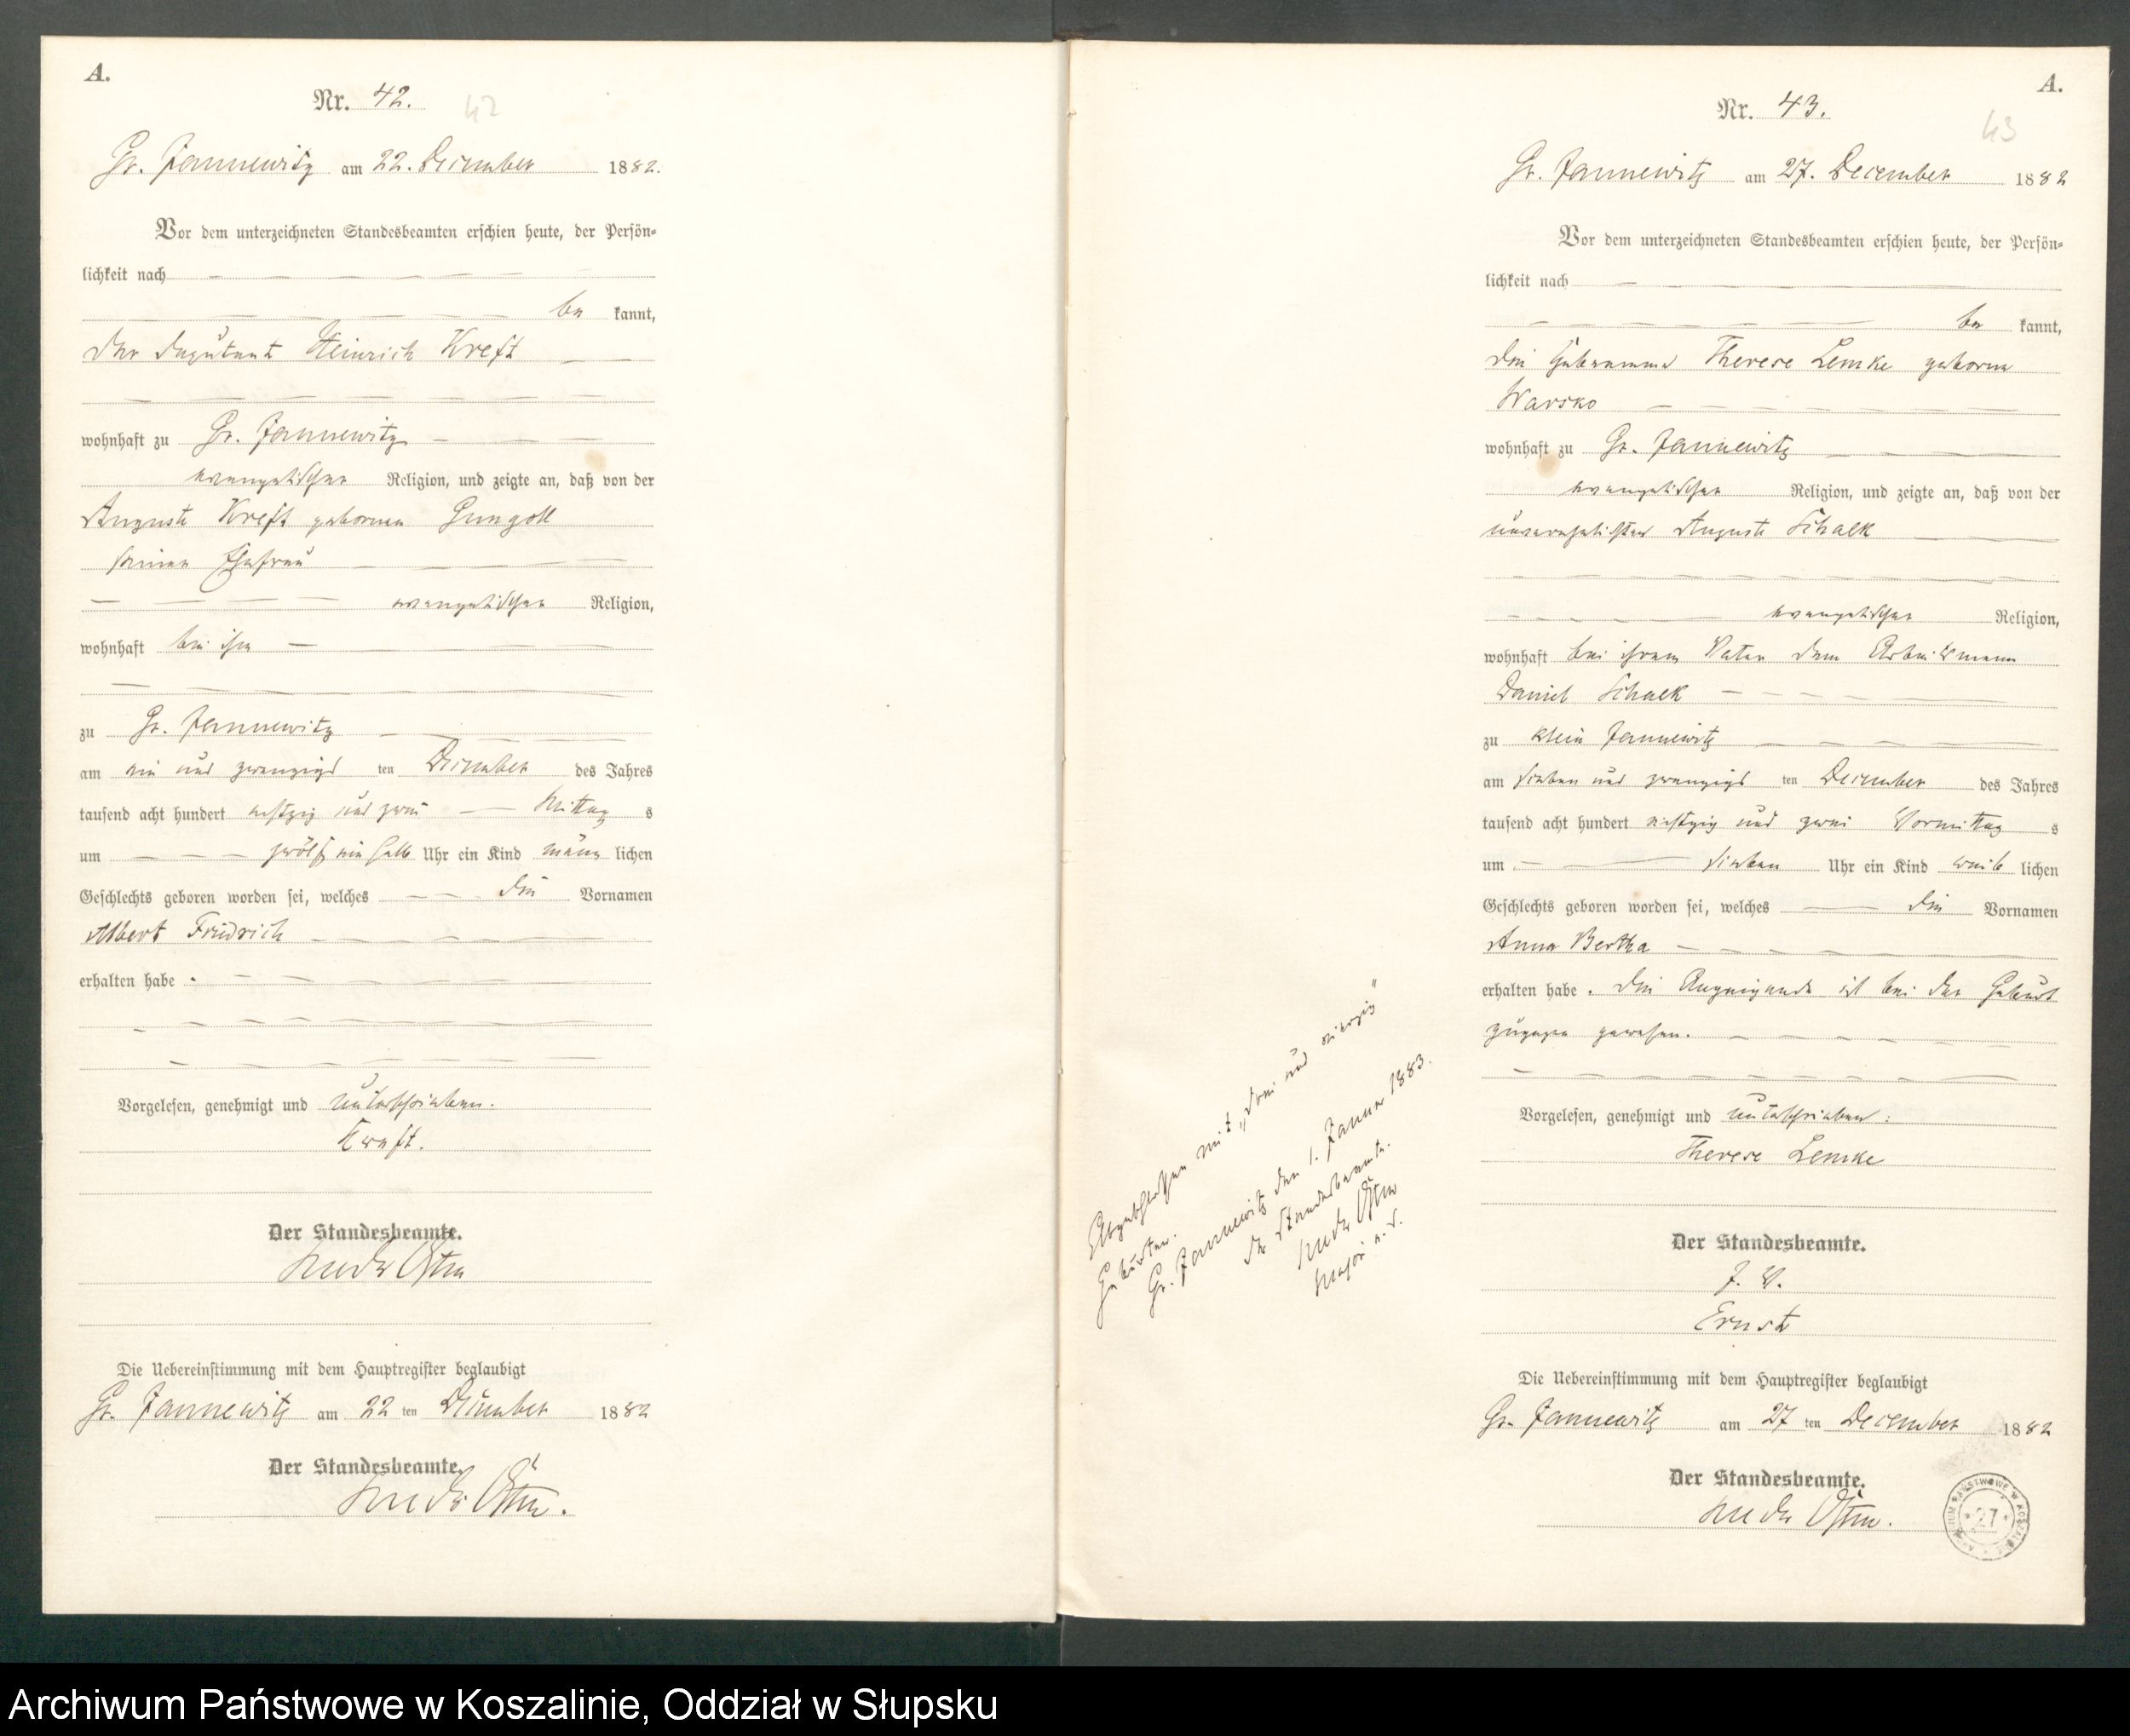 A.
Nr. 42.
42
Gr. Jannewitz am 22. December 1882.
Vor dem unterzeichneten Standesbeamten erschien heute, der Persön-
lichkeit nach
be kannt,
der Deputant Heinrich Kreft
wohnhaft zu Gr. Jannewitz
evangelischer Religion, und zeigte an, daß von der
Auguste Kreft geborenen Gungoll
seiner Ehefrau
evangelischer Religion,
wohnhaft bei ihm
zu Gr. Jannewitz
am ein und zwanzigs ten December des Jahres
tausend acht hundert achtzig und zwei Mittag s
um zwölf ein halb Uhr ein Kind männ lichen
Geschlechts geboren worden sei, welches die Vornamen
Albert Friedrich
erhalten habe.
Vorgelesen, genehmigt und unterschrieben.
Kreft.
Der Standesbeamte.
von der Osten
Die Uebereinstimmung mit dem Hauptregister beglaubigt
Gr. Jannewitz am 22 ten December 1882
Der Standesbeamte.
von der Osten.
A.
Nr. 43.
43
Gr. Jannewitz am 27. December 1882
Vor dem unterzeichneten Standesbeamten erschien heute, der Persön-
lichkeit nach
be kannt,
die Hebeamme Therese Lemke geborne
Warsko
wohnhaft zu Gr. Jannewitz
evangelischer Religion, und zeigte an, daß von der
unverehelichten Auguste Schalk
evangelischer Religion,
wohnhaft bei ihrem Vater dem Arbeitsmann
Daniel Schalk
zu Klein Jannewitz
am sieben und zwanzigs ten December des Jahres
tausend acht hundert achtzig und zwei Vormittag s
um sieben Uhr ein Kind weib lichen
Geschlechts geboren worden sei, welches die Vornamen
Anna Bertha
erhalten habe. Die Anzeigende ist bei der Geburt
zugegen gewesen.
Vorgelesen, genehmigt und unterschrieben:
Therese Lemke
Der Standesbeamte.
J. V.
Ernst
Die Uebereinstimmung mit dem Hauptregister beglaubigt
Gr. Jannewitz am 27 ten December 1882
Der Standesbeamte.
von der Osten.
Abgeschlossen mit „drei und vierzig"
Geburten.
Gr. Jannewitz den 1. Januar 1883.
der Standesbeamte.
von der Osten
Major a. D.
ARCHIWUM PAŃSTWOWE W KOSZALINIE
27
Archiwum Państwowe w Koszalinie, Oddział w Słupsku